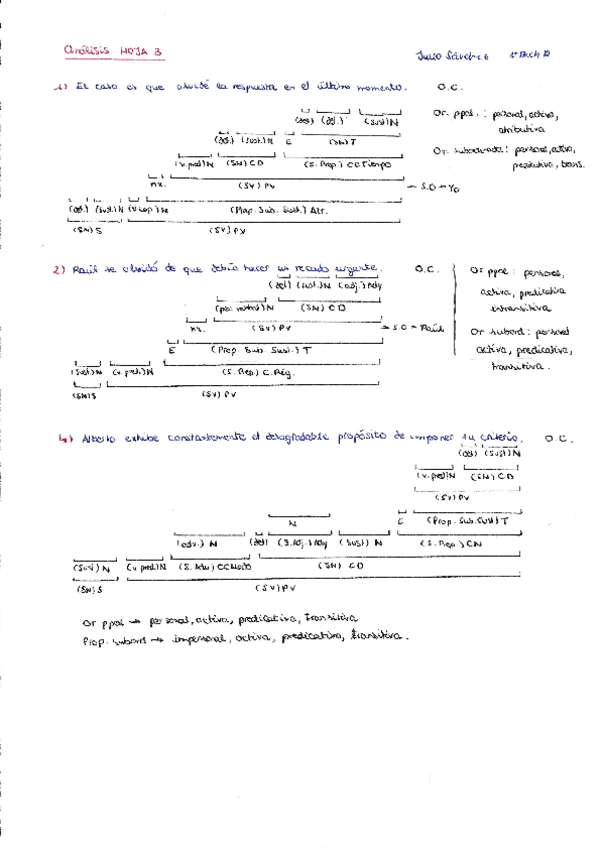 Análisis HOJA 3
1) El caso es que olvidé la respuesta en el último momento. O.C.
Or. ppal. : personal, activa,
atributiva
(det) (adj.) (sust) N
Or. subordinada : personal, activa,
predicativa, trans.
(det) (sust) N E (SN) T
(v. pred) N (SN) CD (S. Prep.) CC Tiempo
nx. (SV) PV → S.O → Yo
(det) (sust) N (v. cop) N (Prop. Sub. Sust.) Atr.
(SN) S (SV) PV
2) Raúl se olvidó de que debía hacer un recado urgente. O.C.
(det) (sust) N (adj.) Ady
Or ppal : personal,
activa, predicativa
intransitiva
(SN) CD
nx. (SV) PV → S.O → Raúl
Or subord : personal
activa, predicativa,
transitiva.
E (Prop. Sub. Sust.) T
(sust) N (v. pred) N (S. Prep) C. Rég.
(SN) S (SV) PV
4) Alberto exhibe constantemente el desagradable propósito de imponer su criterio. O.C.
(det) (sust) N
(v. pred) N (SN) CD
(SV) PV
N E (Prop. Sub. Sust) T
(adv.) N (det) (S. Adj.) Ady (sust) N (S. Prep.) CN
(sust) N (v. pred) N (S. Adv) CC Modo (SN) CD
(SN) S (SV) PV
Or ppal → personal, activa, predicativa, transitiva
Prop. subord → impersonal, activa, predicativa, transitiva.